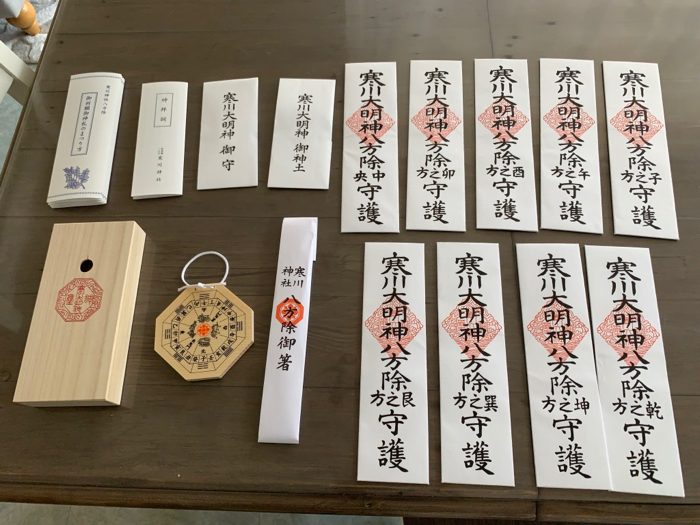 御祈願神札のまつり方
神拝詞
寒川神社
寒川大明神 御守
寒川大明神 御神土
寒川大明神八方除中央守護
寒川大明神八方除卯之方守護
寒川大明神八方除酉之方守護
寒川大明神八方除午之方守護
寒川大明神八方除子之方守護
寒川神社 八方除御箸
寒川大明神八方除艮之方守護
寒川大明神八方除巽之方守護
寒川大明神八方除坤之方守護
寒川大明神八方除乾之方守護